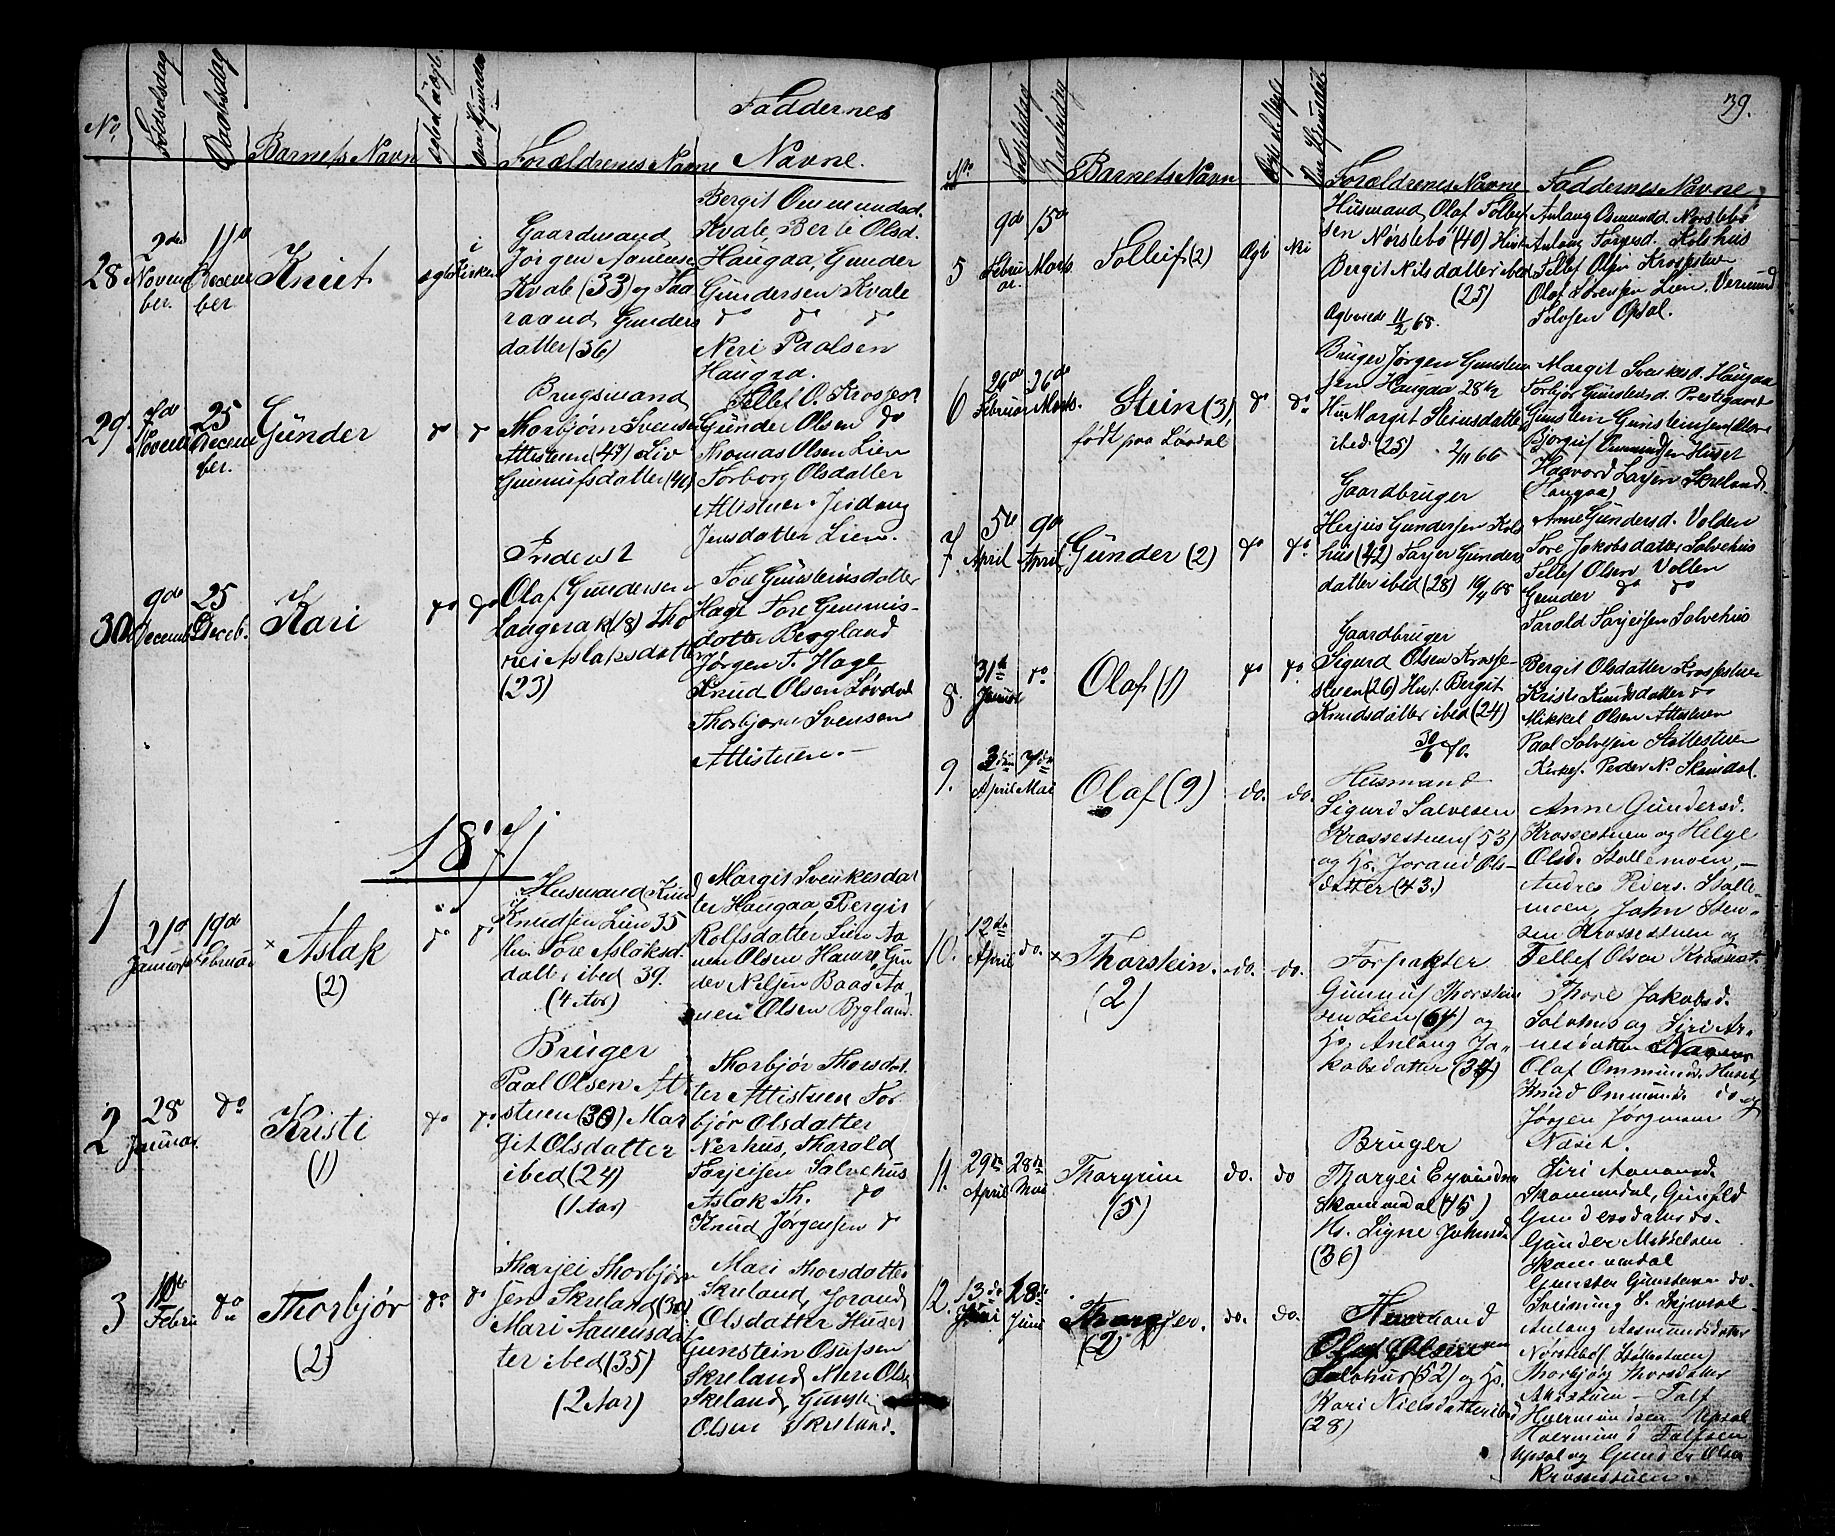 No
Fødselsdag
Daabsdag
Barnets Navn
Forældrenes Navne
Faddernes
Navne.
28
2de
Novem
ber.
11te
Decem
ber
Knut
egte
i
Kirken
Gaardmand
Jørgen
Kvale (33) og Taa
raand Gunders
datter (36)
Bergit Ommundsd.
Kvale Berte Olsd.
Haugaa, Gunder
Gundersen Kvale
do do do
Neri Paalsen
Haugaa.
29.
7de
Novem
25
Decem
ber.
Gunder
do do
Brugsmand
Thorbjørn Svensen
Attistuen (47) Liv
Gunnufsdatter (40)
Tellef O. Krossest
Gunder Olsen do
Thomas Olsen Lien
Torborg Olsdatter
Attistuen
Jensdatter Lien.
30.
9de
Decemb
25
Deceb.
Kari
do do
Inderst
Olaf Gundersen
Langerak (18) Tho
rei Aslaksdatter
(23)
Tore Gunsteinsdatter
Hage Tore Gunnis-
datter Bergland
Jørgen T. Hage
Knud Olsen Løvdal
Thorbjørn Svensen
Attistuen.
1871
1
21de
Januar
19de
Februar
× Aslak
(2)
do do
Husmand Knu
Knudsen Lien 35
Hu. Tore Aslaksd.
datter ibed 39.
(4 Aar)
Margit Svenkesdat
ter Haugaa, Bergit
Rolfsdatter Lien Aa
nen Olsen Hamre Gun
der Nilsen Baas Aa
nen Olsen Bygland.
2
28
Januar
do
Kristi
(1)
do do
Bruger
Paal Olsen Atti
stuen (30) Mar
git Olsdatter
ibed (24)
(1 Aar)
Thorbjør Thorsdat
ter Attistuen Tor
bjør Olsdatter
Nerhus, Thorald
Torjeisen Salvehus
Aslak Th. do
Knud Jørgensen do
3
10de
Febru
do
Thorbjør
(2)
do do
Tharjei Thorbjørn
sen Skreland (30)
Mari Aanensdat
ter ibed (35)
(2 Aar)
Mari Thorsdatter
Skreland, Jorand
Olsdatter Huset
Gunstein Osufsen
Skreland Neri Ols
Skreland, Gunstei
Olsen Skreland.
39.
No
Fødselsdag
Barnets Navn
Forældrenes Navne
Faddernes Navne
5
9de
Febru
ar.
15de
Marts.
Tolleif (2)
Ægt
Husmand Olaf Tollef
sen Nørstebø (40) Hust
Bergit Nilsdatter ibed
(25)
Ægtevied 11/2 68.
Anlaug Osmundd. Norstebø
Anlaug Torjusd. Kolshus
Tellef Olsen Krossestuen
Olaf Lien. Vermund
Tolvsen Opsal.
6
26de
Februar
26de
Marts.
Stein (3)
født paa Løvdal
do do.
Bruger Jørgen Gunstein
sen Haugaa 28 1/2
Hu. Margit Steinsdatter
ibed. (25) 2/11 66
Margit Svenkesd. Haugaa
Torbjør Gunsteinsd. Prestegaard
Gunstein Gunsteinsen
Bjørguf Ommundsen Huset
Haavord Larsen Skreland.
(Haugaa)
7
5te
April
9de
April
Gunder (2)
do do.
Gaardbruger
Herjus Gundersen Kols
hus (42) Tarjer Gunders
datter ibed (28) 19/4 68
Anne Gundersd. Volden
Tore Jakobsdatter Salvehus
Tellef Olsen Vollen
Gunder do do
Tarald Tarjeisen Salvehus
8.
31te
Januar
do.
Olaf (1)
do do.
Gaardbruger
Sigurd Olsen Krosse-
stuen (26) Hust. Bergit
Knudsdatter ibed (24)
30/6 70.
Bergit Olsdatter Krossestuen
Kristi Knudsdatter do
Mikkel Olsen Attistuen
Paal Salvesen Støllestuen
Kirkes. Peder N. Skomdal.
9.
3die
April
7de
Mai
Olaf (9)
do. do.
Husmand
Sigurd Salvesen
Krossestuen (53)
og Hs. Jorand Ols-
datter (43.)
Anne Gundersd.
Krossestuen og Helge
Olsd. Støllemoen,
Andres Peders. Stølle
moen, John Sten-
sen Krossestuen og
Tellef Olsen Krossest.
10.
12te
April
do.
× Thorstein.
(2)
do. do.
Forpagter
Gunnuf Thorstein
sen Lien (64) og
Hs. Anlaug Ja-
kobsdatter (34)
Thore Jakobsd.
Salvhus og Siri Ar-
nesdatter
Olaf Ommunds. Huset,
Knud Ommunds. do og
Jørgen Jørgensen
Næset.
11.
29de
April
28de
Mai
Thorgrim
(5)
do. do
Bruger
Thorgei Eyvindsen
Skomendal (45)
Hs. Signe Johnsd.
(36)
Siri Aanensd.
Skomendal, Gunild
Gundersdatter do.
Gunder Mikkelsen
Skomendal
Gunster Gunstensen do.
12.
13de
Juni
18de
Juni
Thorgjer.
(2)
do. do.
Husmand
Olaf Olsen
Salvhus (52) og Hs.
Kari Nielsdatter ibd
(28)
Sveinung S.
Anlaug Aasmundsdatter
Norstebø (Støllestuen)
Thorbjør Thorsdatter
Attistuen – Tolf
Huermundsen Upsal
Huermund Tolfsen
Upsal og Gunder Olsen
Krossestuen.